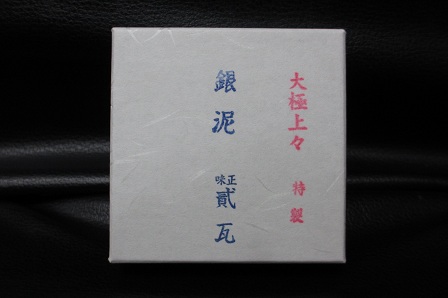 大極上々 特製
銀泥 正味貳瓦